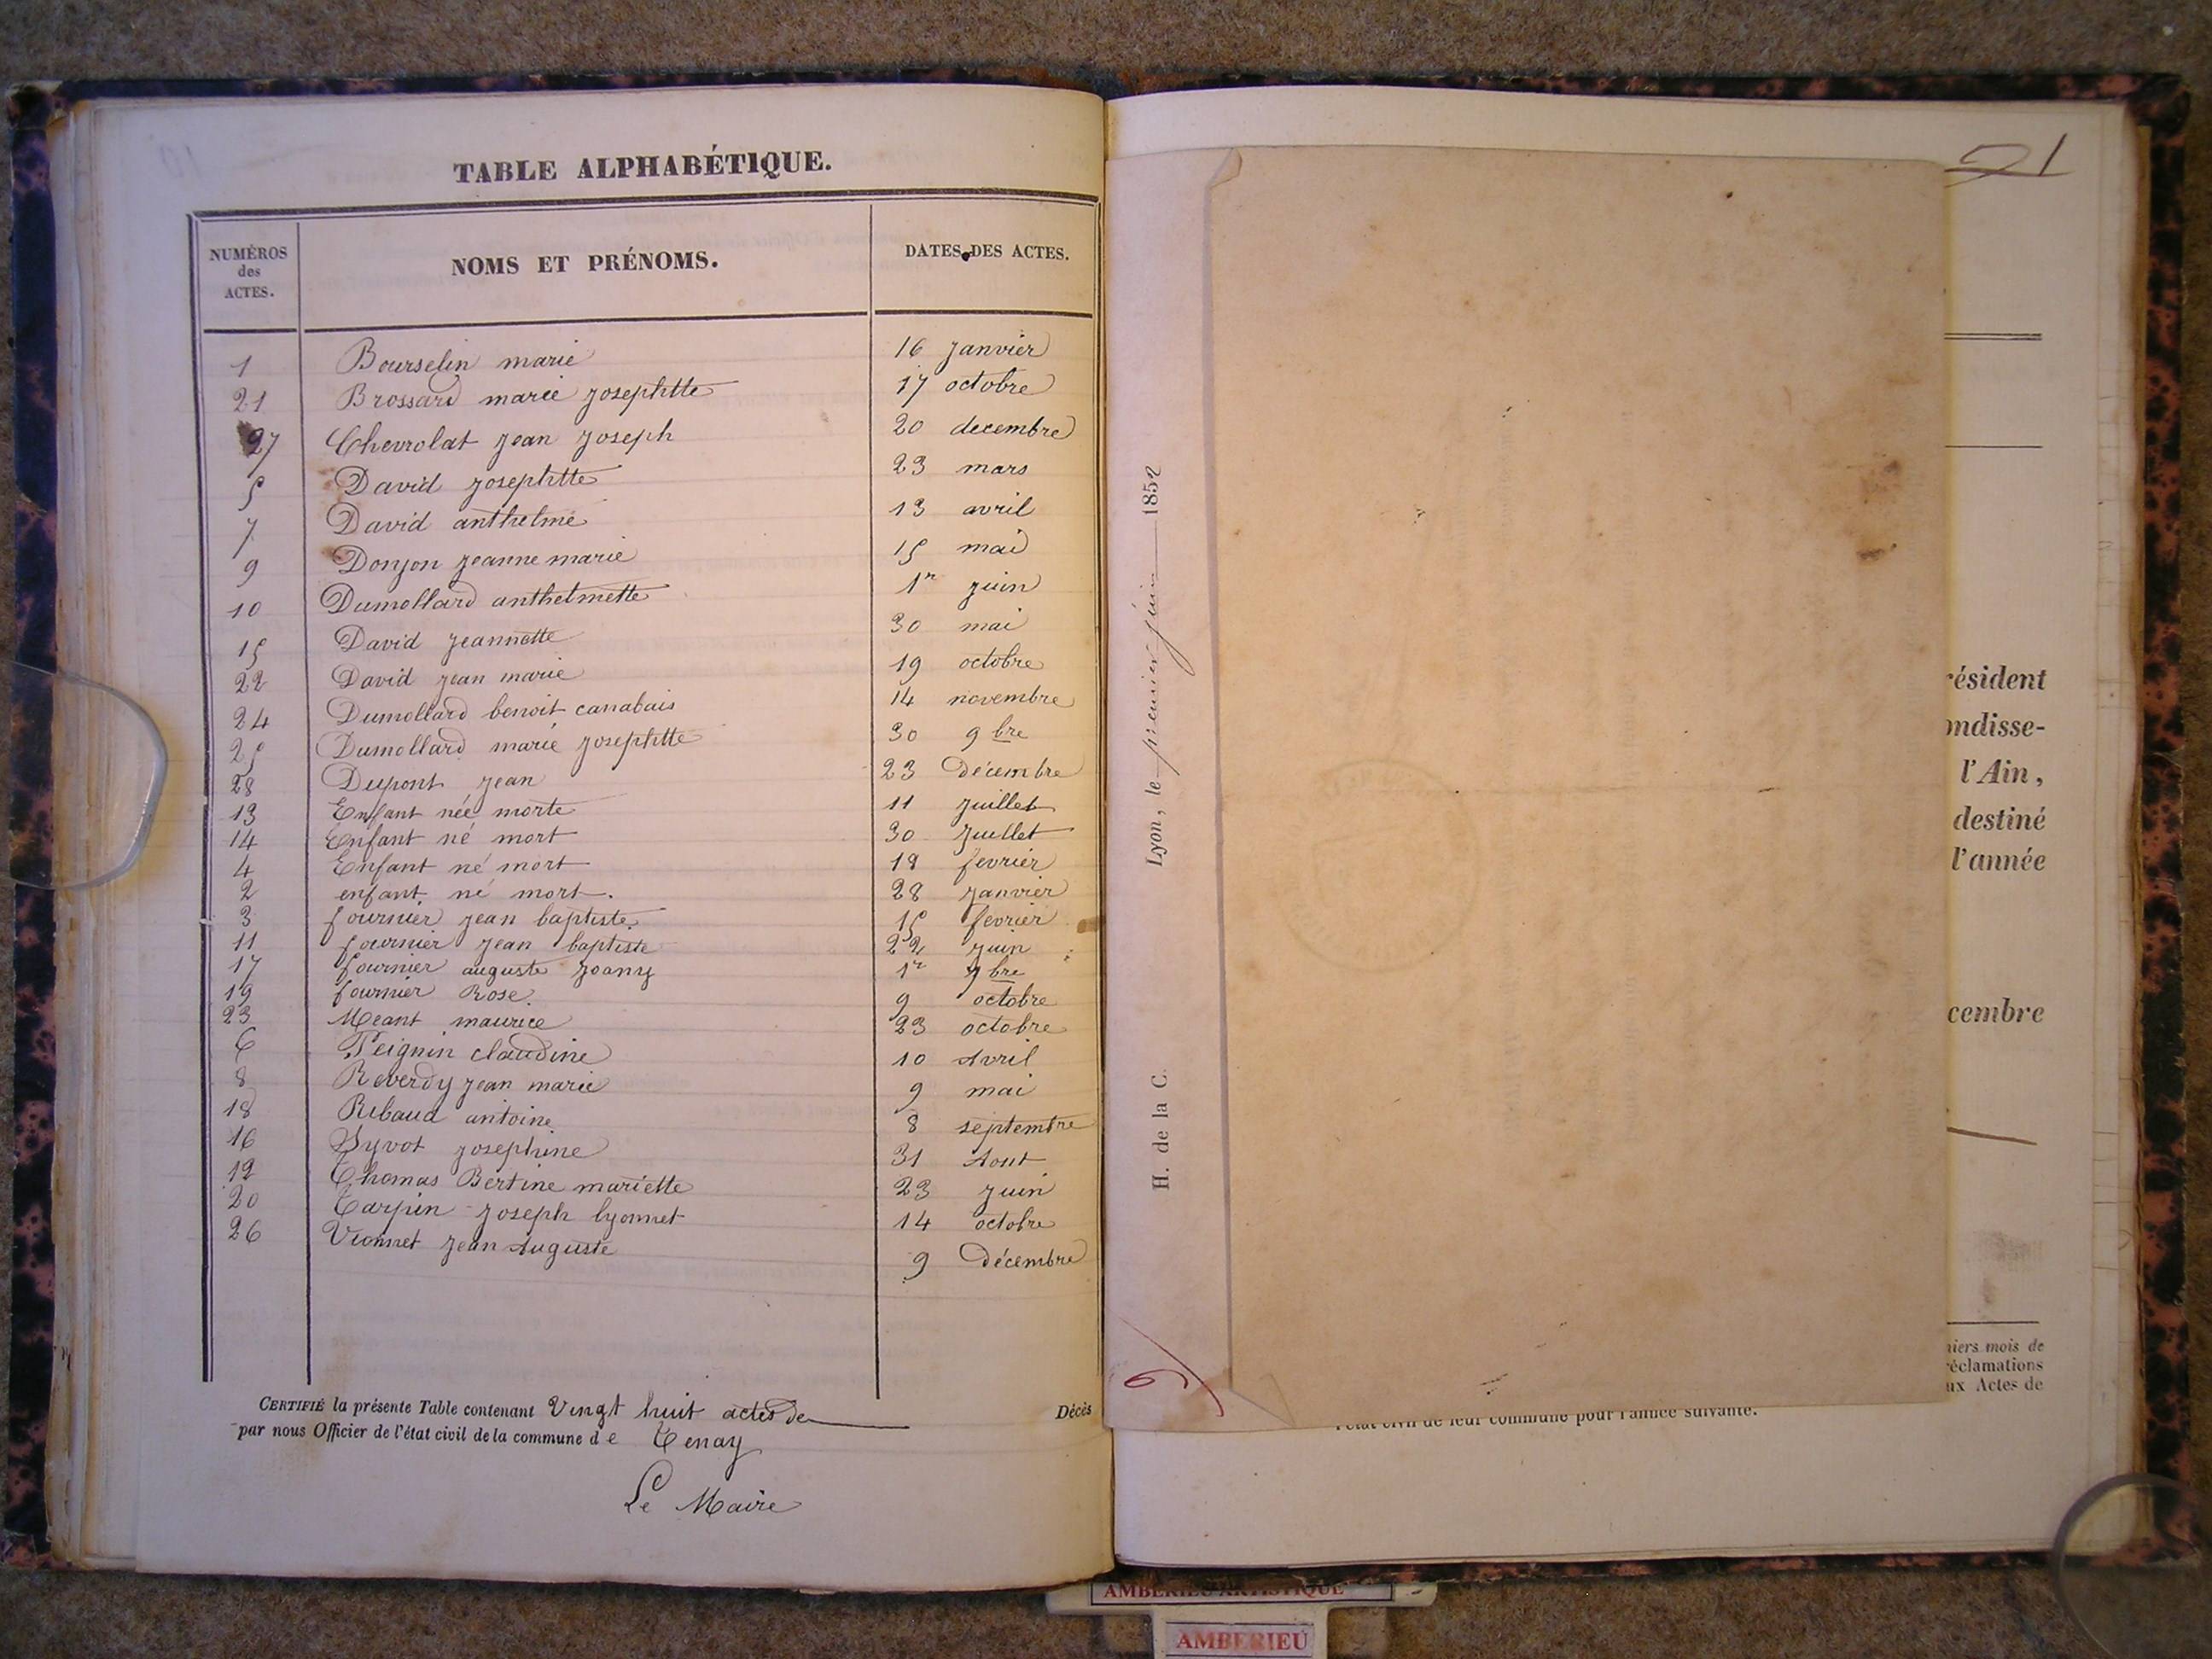 TABLE ALPHABÉTIQUE.
NUMÉROS des ACTES. NOMS ET PRÉNOMS. DATES DES ACTES.
1 Bourselin marie 16 janvier
21 Brossard marie josephtte 17 octobre
27 Chevrolat jean joseph 20 decembre
5 David josephtte 23 mars
7 David anthelme 13 avril
9 Donjon jeanne marie 15 mai
10 Dumollard anthelmette 1er juin
15 David jeannette 30 mai
22 David jean marie 19 octobre
24 Dumollard benoit 14 novembre
25 Dumollard marie josephtte 30 9bre
28 Dupont jean 23 Décembre
13 Enfant née morte 11 juillet
14 Enfant né mort 30 juillet
4 Enfant né mort 18 fevrier
2 enfant né mort. 28 janvier
3 fournier jean baptiste 15 fevrier
11 fournier jean baptiste 22 juin
17 fournier auguste joany 1er 9bre
19 fournier Rose. 9 octobre
23 Meant maurice 23 octobre
6 Peignin claudine 10 Avril
8 Reverdy jean marie 9 mai
18 Ribaud antoine 8 septembre
16 Syvot josephine 31 Aout
12 Thomas Bertine mariette 23 juin
20 Tarpin joseph lyonnet 14 octobre
26 Vionnet jean Auguste 9 Décembre
CERTIFIÉ la présente Table contenant Vingt huit actes de Décès
par nous Officier de l'état civil de la commune de Tenay
Le Maire
H. de la C. Lyon, le premier juin 1852
résident
ondisse-
l'Ain,
destiné
l'année
cembre
niers mois de
réclamations
ux Actes de
l'état civil de leur commune pour l'année suivante.
AMBERIEU ARTISTIQUE
AMBERIEU